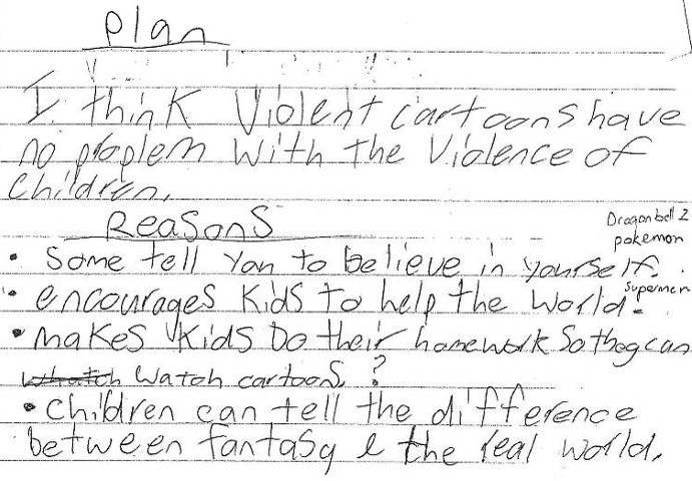 Plan
I think Violent cartoons have
no proplem with the Violence of
children.
Reasons
Dragon bell Z
pokemon
• Some tell you to believe in yourself.
• encourages kids to help the world. Supermen
• makes kids Do their homework so they can
whatch watch cartoons. ?
• children can tell the difference
between fantasy & the real world.